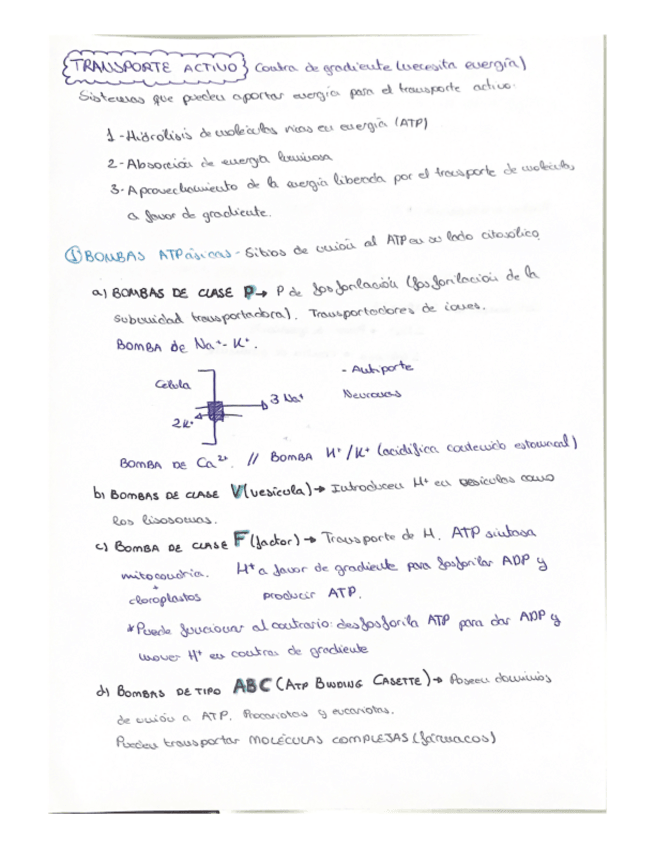 TRANSPORTE ACTIVO Contra de gradiente (necesita energía)
Sistemas que pueden aportar energía para el transporte activo.
1 - Hidrólisis de moléculas ricas en energía (ATP)
2 - Absorción de energía luminosa
3 - Aprovechamiento de la energía liberada por el transporte de moléculas
a favor de gradiente.
① BOMBAS ATPásicas - Sitios de unión al ATP en su lado citosólico.
a) BOMBAS DE CLASE P → P de fosforilación (fosforilación de la
subunidad transportadora). Transportadores de iones.
BOMBA DE Na+ - K+.
- Antiporte
Célula
Neuronas
3 Na+
2K+
BOMBA DE Ca2+ // BOMBA H+/K+ (acidifica contenido estomacal)
b) BOMBAS DE CLASE V (vesícula) → Introducen H+ en vesículas como
los lisosomas.
c) BOMBA DE CLASE F (factor) → Transporte de H. ATP sintasa
mitocondria. H+ a favor de gradiente para fosforilar ADP y
+
cloroplastos producir ATP.
* Puede funcionar al contrario: desfosforila ATP para dar ADP y
mover H+ en contra de gradiente
d) BOMBAS DE TIPO ABC (ATP BINDING CASETTE) → Poseen dominios
de unión a ATP. Procariotas y eucariotas.
Pueden transportar MOLÉCULAS COMPLEJAS (fármacos)